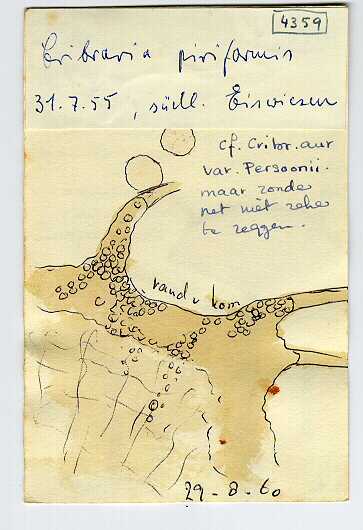 4359
Cribraria piriformis
31.7.55, südl. Eiswiesen
cf. Cribr. aur
var. Persoonii.
maar zonder
net niet zeker
te zeggen.
rand v kom
29-8-60